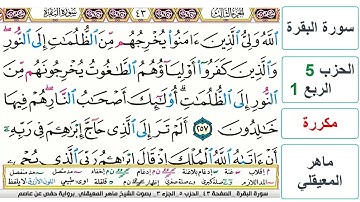 الجزء الثالث
٤٣
سورة البقرة
ٱللَّهُ وَلِىُّ ٱلَّذِينَ ءَامَنُوا۟ يُخْرِجُهُم مِّنَ ٱلظُّلُمَٰتِ إِلَى ٱلنُّورِ
وَٱلَّذِينَ كَفَرُوٓا۟ أَوْلِيَآؤُهُمُ ٱلطَّٰغُوتُ يُخْرِجُونَهُم مِّنَ
ٱلنُّورِ إِلَى ٱلظُّلُمَٰتِ أُو۟لَٰٓئِكَ أَصْحَٰبُ ٱلنَّارِ هُمْ فِيهَا
خَٰلِدُونَ ٢٥٧ أَلَمْ تَرَ إِلَى ٱلَّذِى حَآجَّ إِبْرَٰهِۦمَ فِى رَبِّهِۦٓ
أَنْ ءَاتَىٰهُ ٱللَّهُ ٱلْمُلْكَ إِذْ قَالَ إِبْرَٰهِۦمُ رَبِّىَ ٱلَّذِى يُحْىِۦ
سورة البقرة
الحزب 5
الربع 1
مكررة
ماهر
المعيقلي
سورة البقرة الصفحة ٤٣ الحزب ٥ الجزء ٣ بصوت الشيخ ماهر المعيقلي برواية حفص عن عاصم